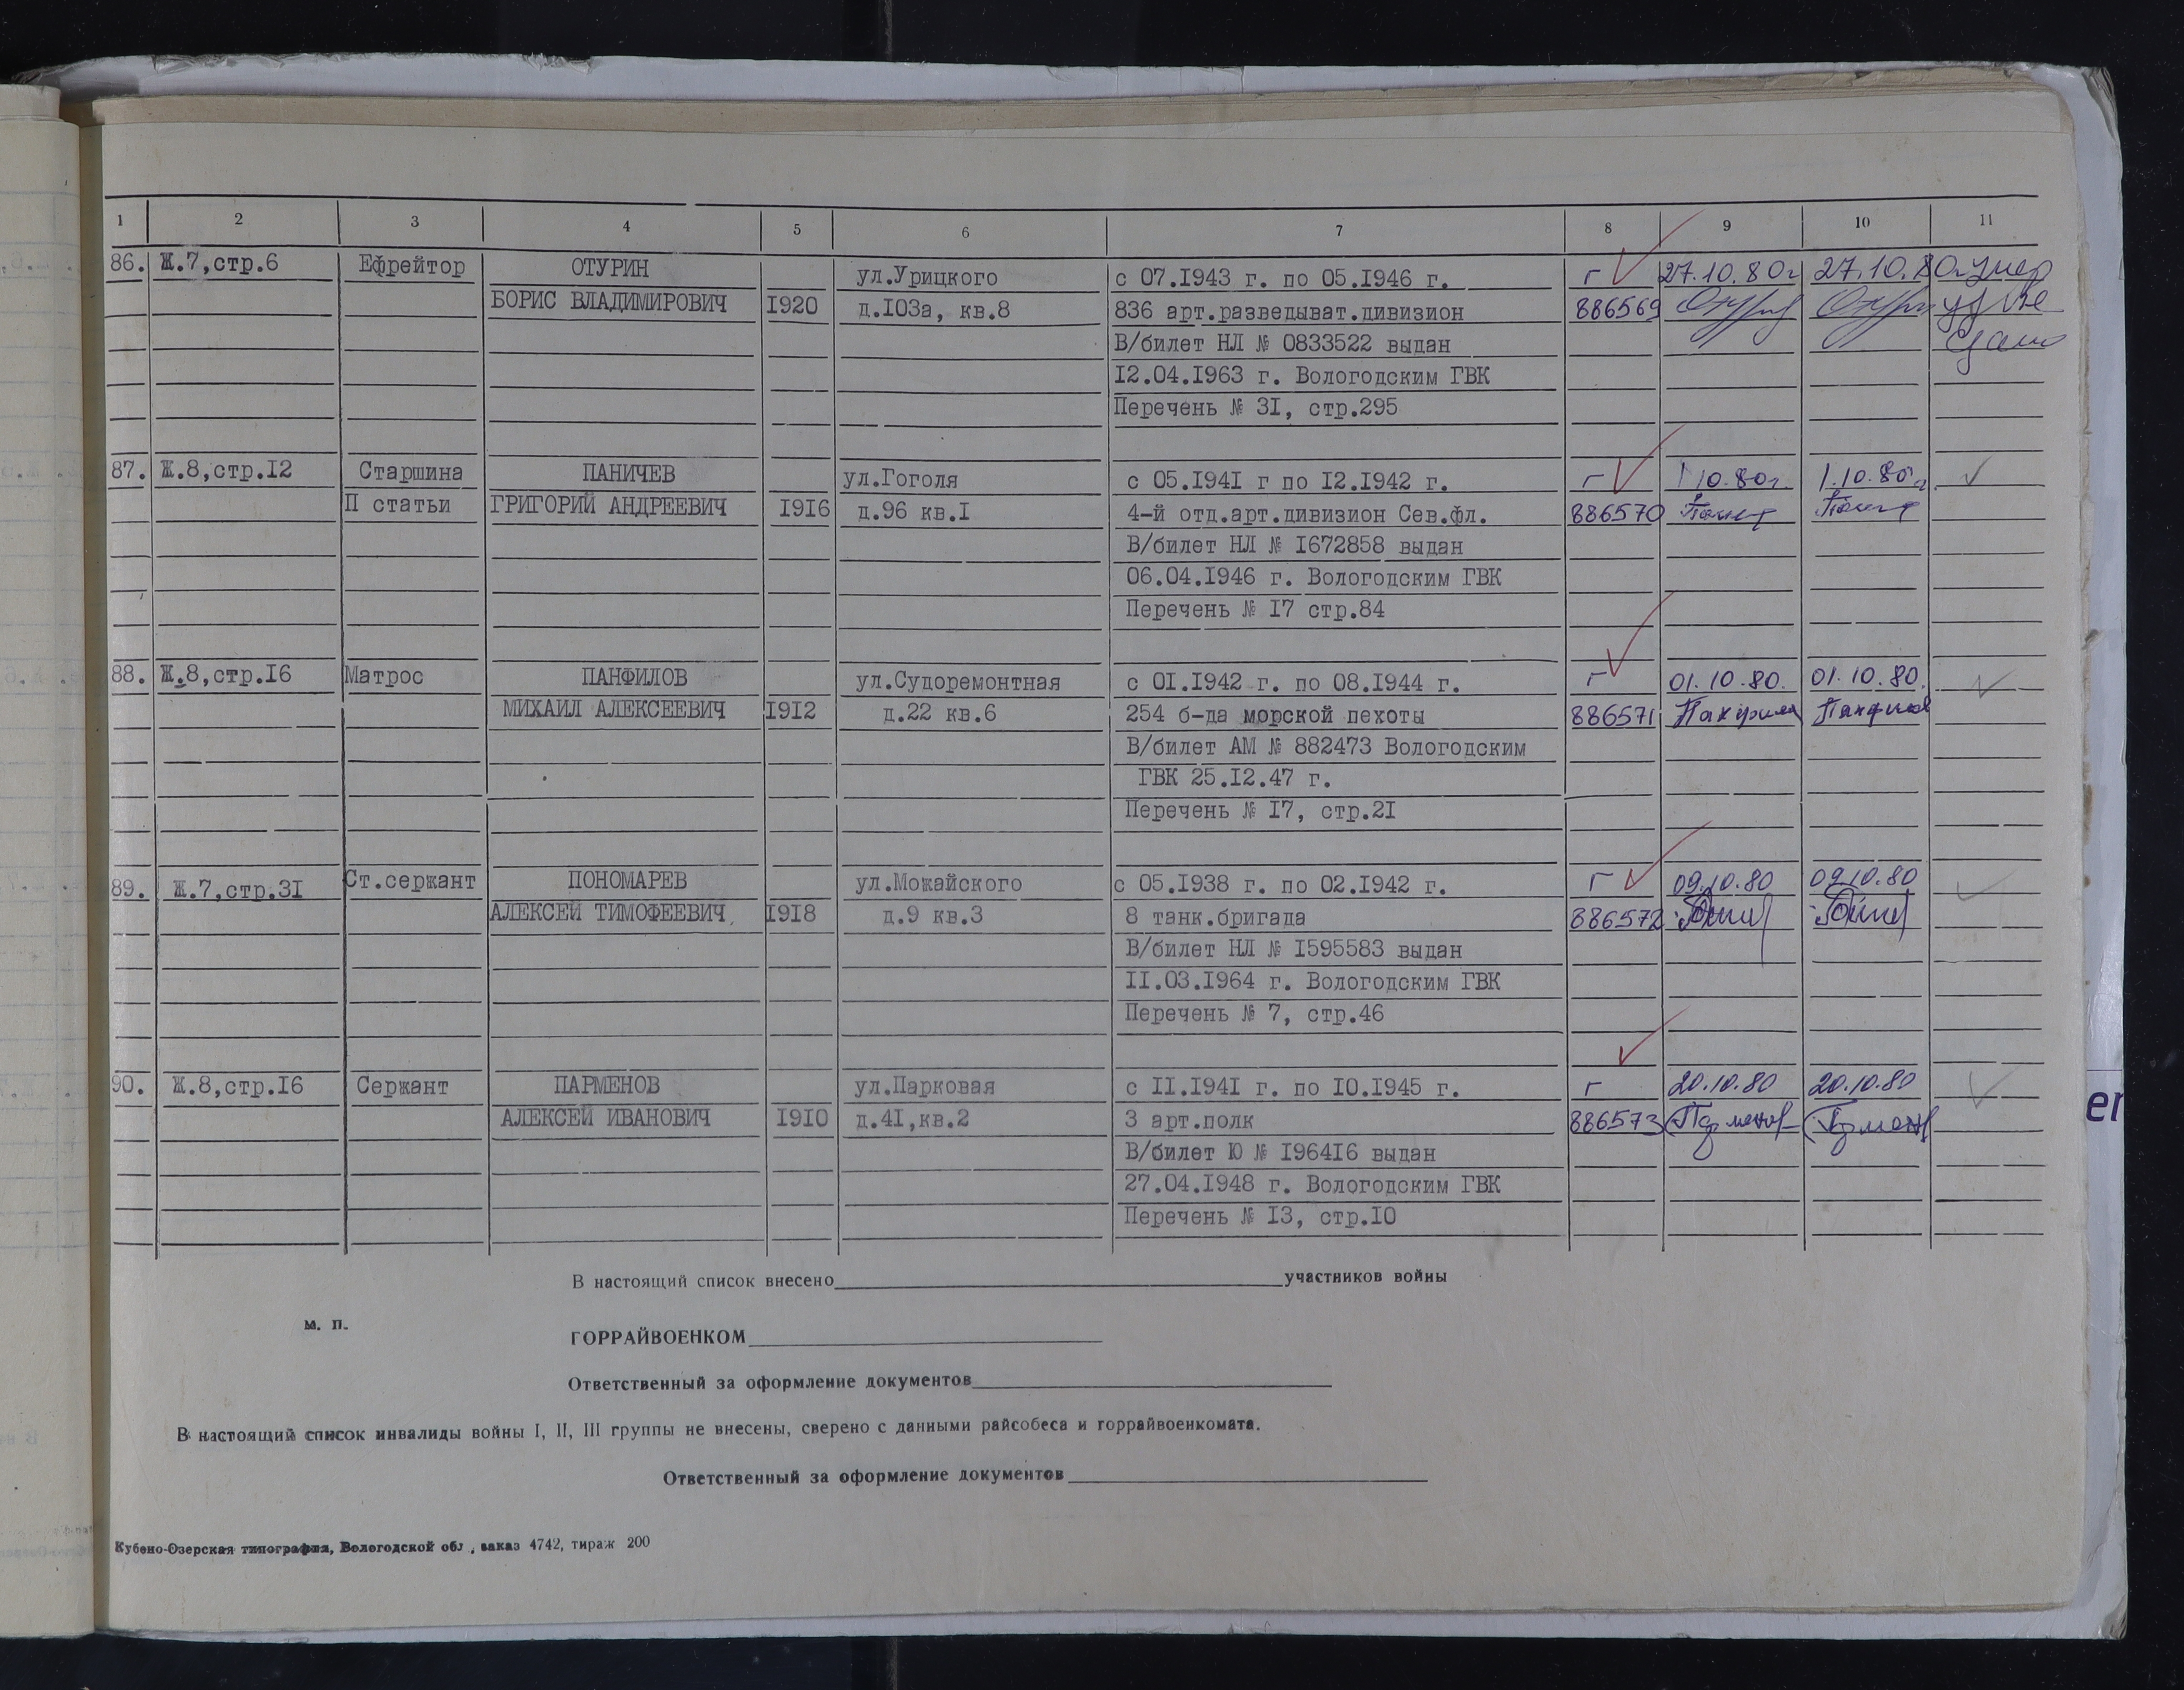 1 2 3 4 5 6 7 8 9 10 11
86. Ж.7,стр.6 Ефрейтор ОТУРИН ул.Урицкого с 07.1943 г. по 05.1946 г. г 27.10.80г 27.10.80г умер
БОРИС ВЛАДИМИРОВИЧ 1920 д.103а, кв.8 836 арт.разведыват.дивизион 886569
В/билет НЛ № 0833522 выдан
12.04.1963 г. Вологодским ГВК
Перечень № 31, стр.295
87. Ж.8,стр.12 Старшина ПАНИЧЕВ ул.Гоголя с 05.1941 г по 12.1942 г. г 1.10.80г 1.10.80г.
П статьи ГРИГОРИЙ АНДРЕЕВИЧ 1916 д.96 кв.1 4-й отд.арт.дивизион Сев.фл. 886570
В/билет НЛ № 1672858 выдан
06.04.1946 г. Вологодским ГВК
Перечень № 17 стр.84
88. Ж.8,стр.16 Матрос ПАНФИЛОВ ул.Судоремонтная с 01.1942 г. по 08.1944 г. г 01.10.80. 01.10.80.
МИХАИЛ АЛЕКСЕЕВИЧ 1912 д.22 кв.6 254 б-да морской пехоты 886571 Панфилов Панфилов
В/билет АМ № 882473 Вологодским
ГВК 25.12.47 г.
Перечень № 17, стр.21
89. Ж.7,стр.31 Ст.сержант ПОНОМАРЕВ ул.Можайского с 05.1938 г. по 02.1942 г. г 09.10.80 09.10.80
АЛЕКСЕЙ ТИМОФЕЕВИЧ. 1918 д.9 кв.3 8 танк.бригада 886572
В/билет НЛ № 1595583 выдан
11.03.1964 г. Вологодским ГВК
Перечень № 7, стр.46
90. Ж.8,стр.16 Сержант ПАРМЕНОВ ул.Парковая с 11.1941 г. по 10.1945 г. г 20.10.80 20.10.80
АЛЕКСЕЙ ИВАНОВИЧ 1910 д.41,кв.2 3 арт.полк 886573
В/билет Ю № 196416 выдан
27.04.1948 г. Вологодским ГВК
Перечень № 13, стр.10
В настоящий список внесено участников войны
м. п.
ГОРРАЙВОЕНКОМ
Ответственный за оформление документов
В настоящий список инвалиды войны I, II, III группы не внесены, сверено с данными райсобеса и горрайвоенкомата.
Ответственный за оформление документов
Кубено-Озерская типография, Вологодской обл., заказ 4742, тираж 200